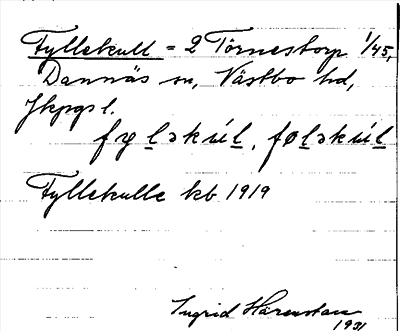 Fyllekull = 2 Törnestorp 1/45,
Dannäs sn, Västbo hd,
Jkpgs l.
fylskúl, følskúl
Fyllekulle kb 1919
Ingrid
1931